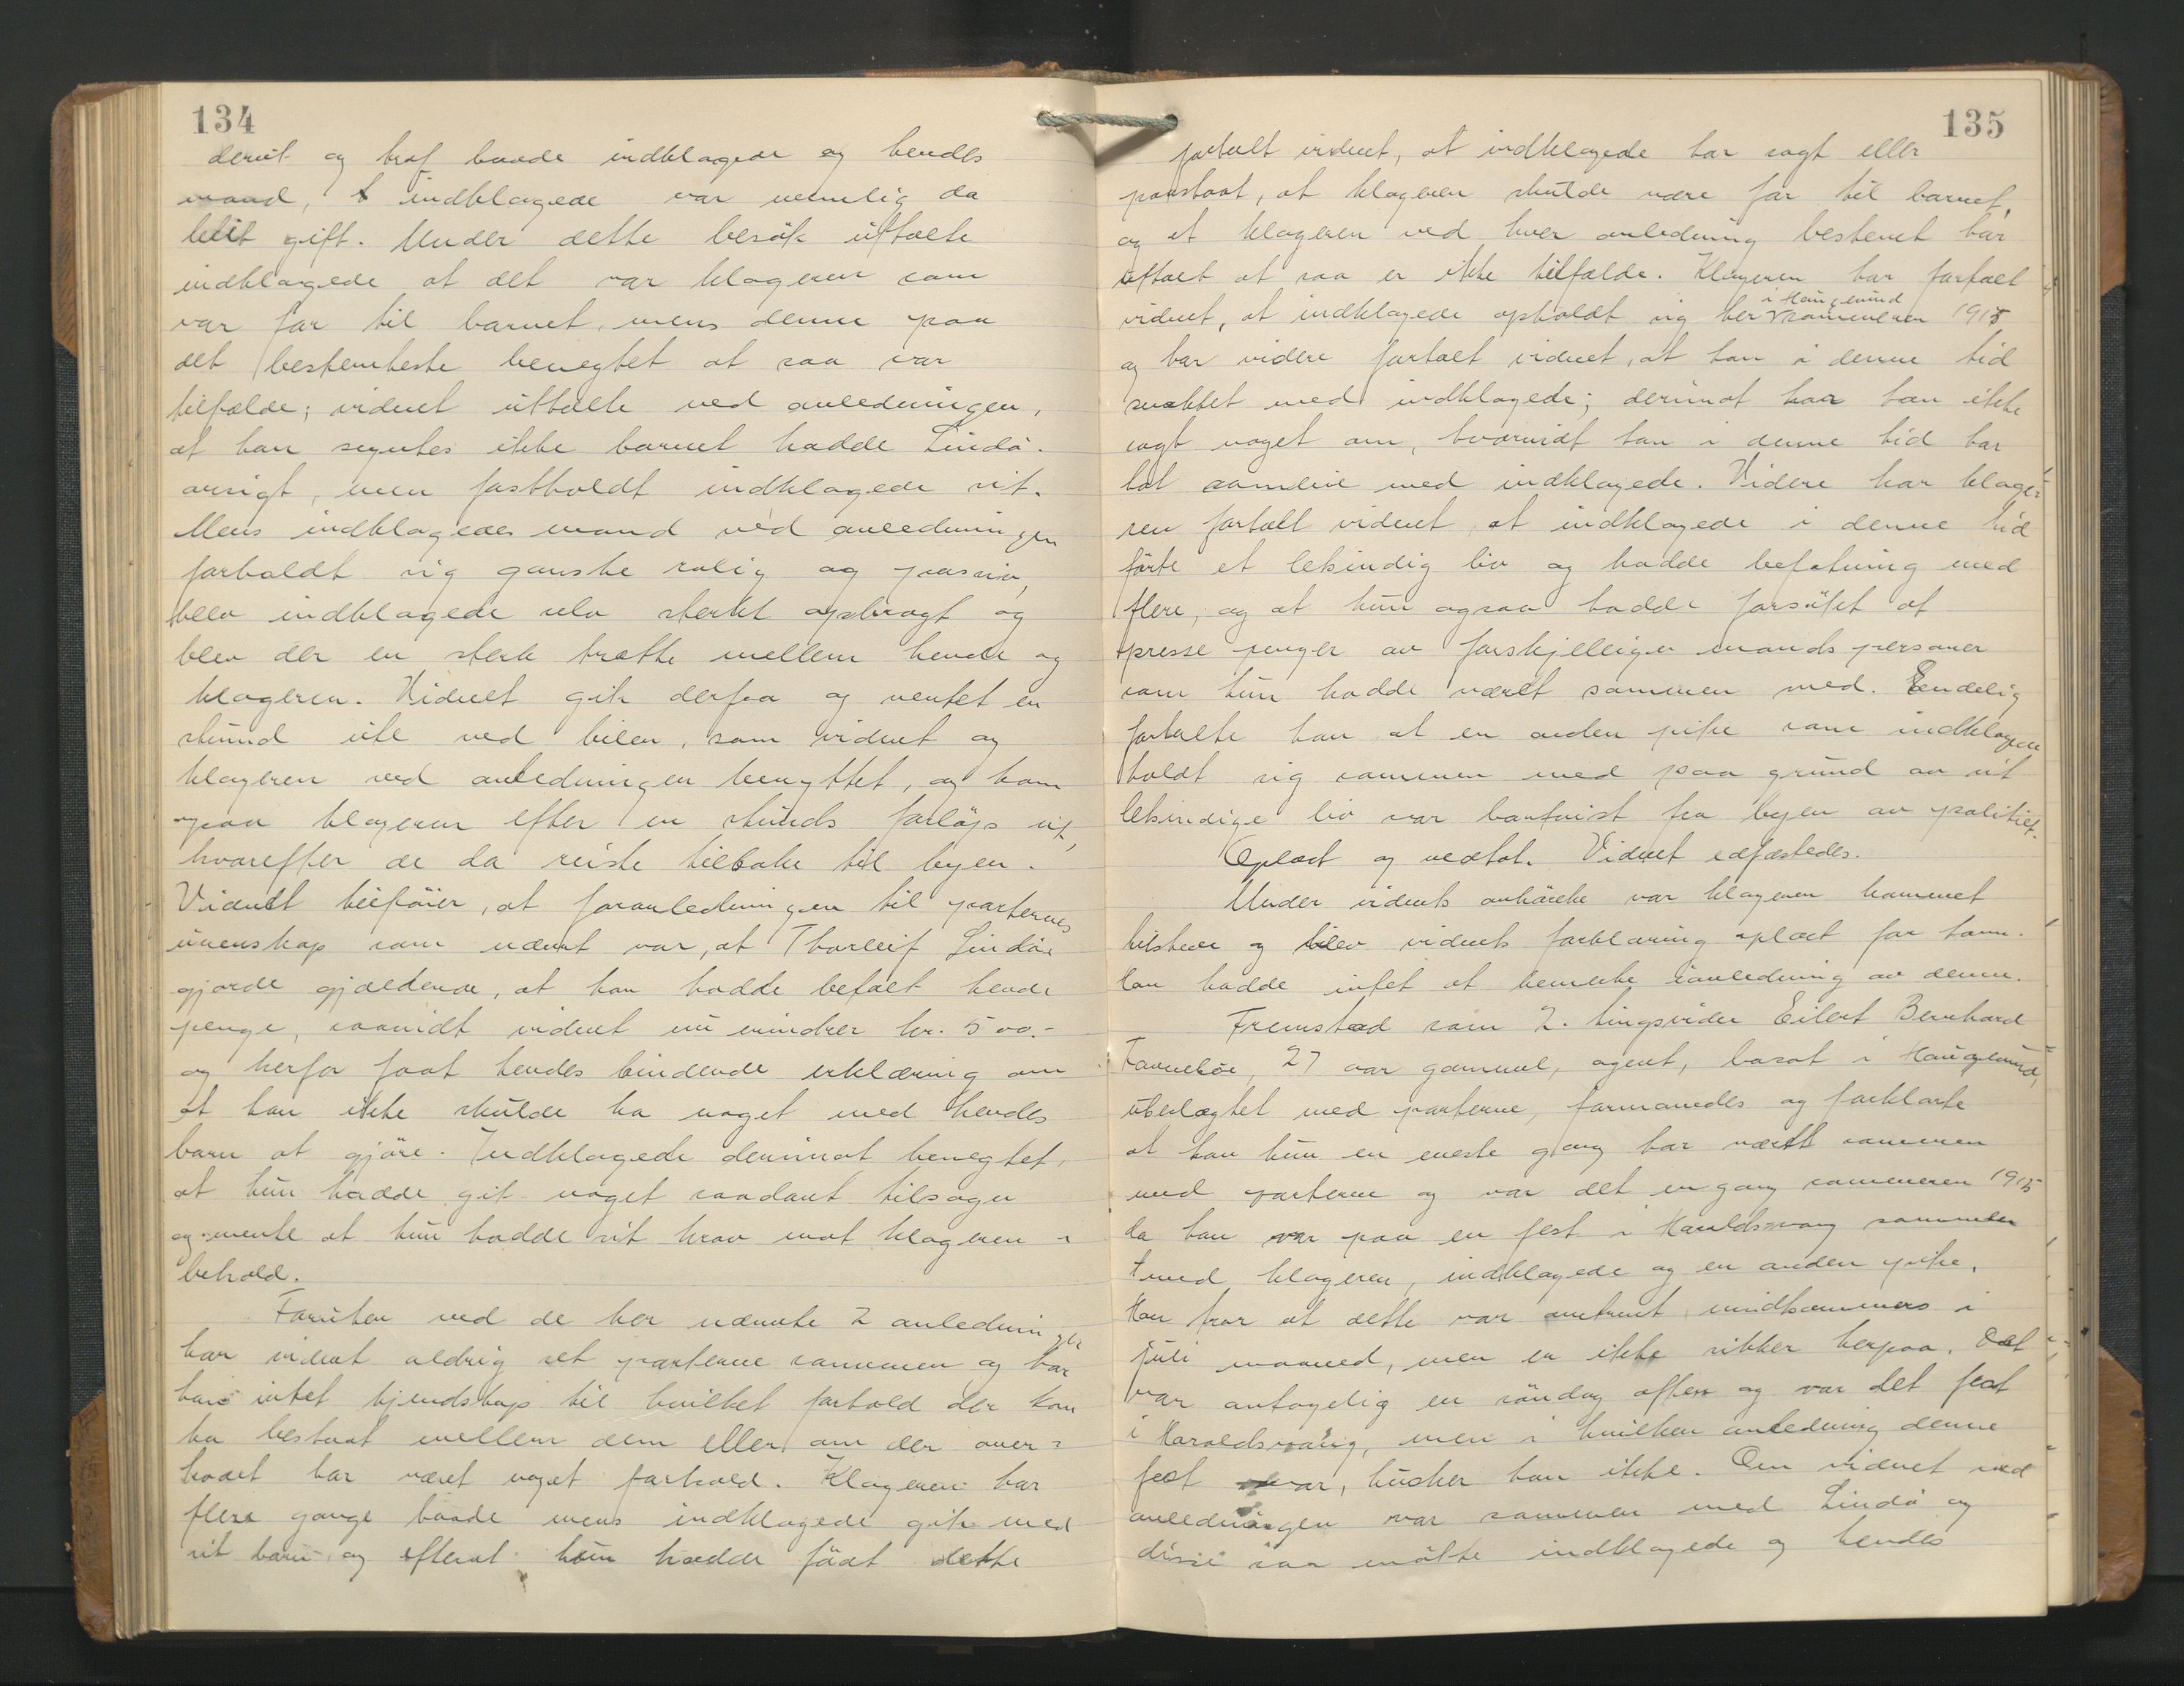 134
derut og traf baade indklagede og hendes
mand, indklagede var nemlig da
blit gift. Under dette besök uttalte
indklagede at det var klageren som
var far til barnet, mens denne paa
det bestemteste benegtet at saa var
tilfælde; vidnet uttalte ved anledningen,
at han syntes ikke barnet hadde Lindö.
ansigt, men fastholdt indklagede sit.
Mens indklagedes mand ved anledningen
forholdt sig ganske rolig og passiv,
blev indklagede selv sterkt opbragt og
blev der en sterk trætte mellem hende og
klageren. Vidnet gik derfra og ventet en
stund ute ved bilen, som vidnet og
klageren ved anledningen benyttet, og kom
ogsaa klageren efter en stunds forlöp ut,
hvorefter de da reiste tilbake til byen.
Vidnet tilföier, at foranledningen til parternes
uvenskap som nævnt var, at Thorleif Lindöe
gjorde gjældende, at han hadde betalt hende
penge, saavidt vidnet nu erindrer kr. 500.-
og herfor faat hendes bindende erklæring om
at han ikke skulde ha noget med hendes
barn at gjöre. Indklagede derimot benegtet,
at hun hadde git noget saadant tilsagn
og mente at hun hadde sit krav mot klageren i
behold.
Foruten ved de her nævnte 2 anledninger
har vidnet aldrig set parterne sammen og har
han intet kjendskap til hvilket forhold der kan
ha bestaat mellem dem eller om der over-
hodet har været noget forhold. Klageren har
flere gange baade mens indklagede gik med
sit barn og efterat hun hadde födt dette
135
fortalt vidnet, at indklagede har sagt eller
paastaat, at klageren skulde være far til barnet,
og at klageren ved hver anledning bestemt har
uttalt at saa er ikke tilfælde. Klageren har fortalt
i Haugesund
vidnet, at indklagede opholdt sig her sommeren 1915
og har videre fortalt vidnet, at han i denne tid
snakket med indklagede; derimot har han ikke
sagt noget om, hvorvidt han i denne tid har
hat samleie med indklagede. Videre har klage-
ren fortalt vidnet, at indklagede i denne tid
förte et letsindig liv og hadde befatning med
flere, og at hun ogsaa hadde forsökt at
presse penger av forskjellige mandspersoner
som hun hadde været sammen med. Endelig
fortalte han at en anden pike som indklagede
holdt sig sammen med paa grund av sit
letsindige liv var bortvist fra byen av politiet.
Oplæst og vedtat. Vidnet edfæstedes.
Under vidnets avhörelse var klageren kommet
tilstede og blev vidnets forklaring oplæst for ham.
Han hadde intet at bemerke i anledning av denne.
Fremstod som 2. tingsvidne Eilert Bernhard
27 aar gammel, agent, bosat i Haugesund,
ubeslægtet med parterne, formanedes og forklarte
at han kun en eneste gang har været sammen
med parterne og var det en gang sommeren 1915
da han var paa en fest i Haraldsvang sammen
med klageren, indklagede og en anden pike.
Han tror at dette var omtrent midtsommers i
juli maaned, men er ikke sikker herpaa. Det
var antagelig en söndag aften og var det fest
i Haraldsvang, men i hvilken anledning denne
fest var, husker han ikke. Om vidnet ved
anledningen var sammen med Lindö og
disse saa mötte indklagede og hendes